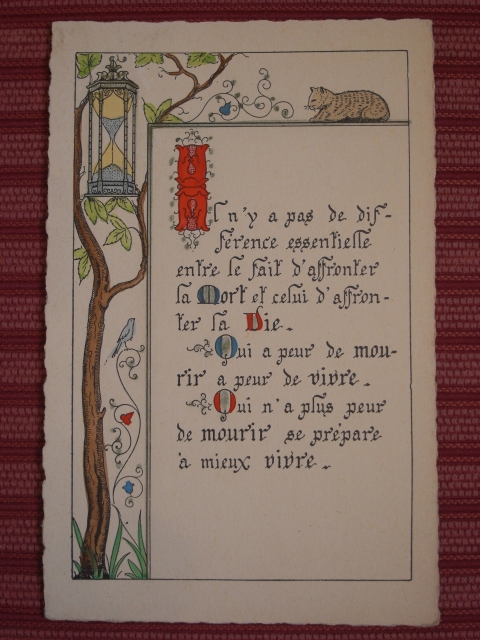 Il n'y a pas de dif-
férence essentielle
entre le fait d'affronter
la Mort et celui d'affron-
ter la Vie.
Qui a peur de mou-
rir a peur de vivre.
Qui n'a plus peur
de mourir se prépare
à mieux vivre.